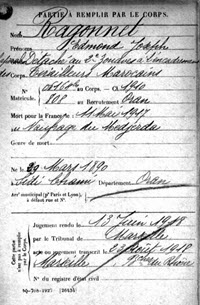 PARTIE À REMPLIR PAR LE CORPS.
Nom Ragonnet
Prénoms Edmond Joseph
détaché au 3e Zouaves
Corps Tirailleurs Marocains
No au Corps. — Cl. 1910
Matricule. 808 au Recrutement Oran
Mort pour la France le 11 Mai 1917
à Naufrage du Medjerda
Genre de mort
Né le 29 Mars 1890
à Département Oran
Arrt municipal (pr Paris et Lyon),
à défaut rue et No.
Jugement rendu le 13 Juin 1918
par le Tribunal de Marseille
acte ou jugement transcrit le août 1918
à Marseille Bches du Rhône
No du registre d'état civil